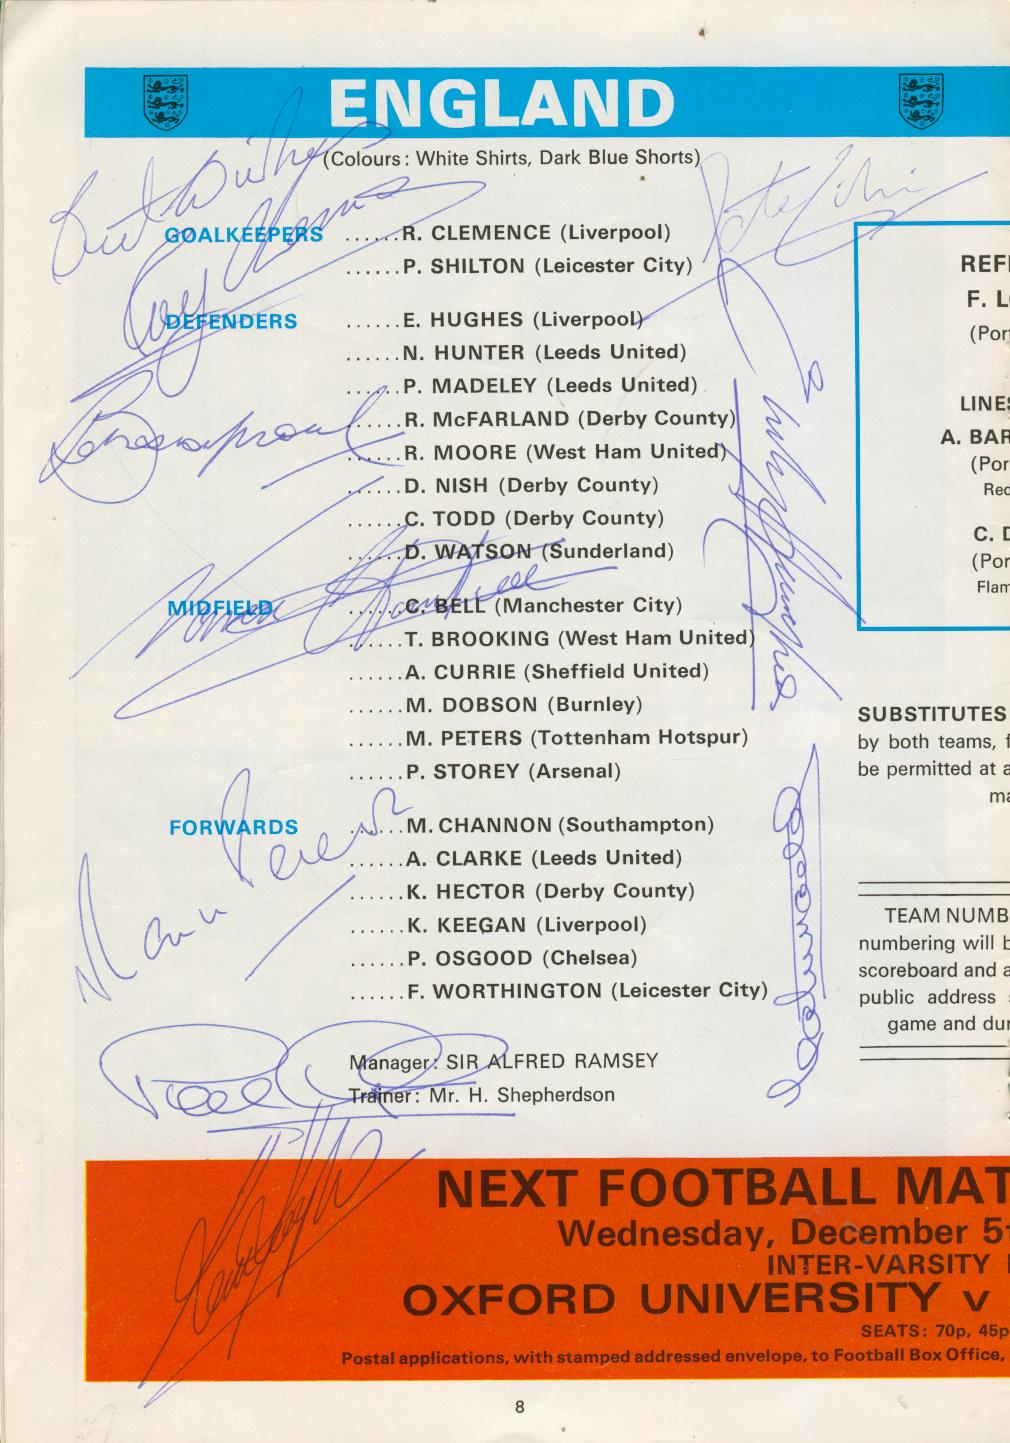 ENGLAND
(Colours: White Shirts, Dark Blue Shorts)
Best Wishes
GOALKEEPERS ......R. CLEMENCE (Liverpool)
......P. SHILTON (Leicester City)
DEFENDERS ......E. HUGHES (Liverpool)
......N. HUNTER (Leeds United)
......P. MADELEY (Leeds United)
......R. McFARLAND (Derby County)
......R. MOORE (West Ham United)
......D. NISH (Derby County)
......C. TODD (Derby County)
......D. WATSON (Sunderland)
MIDFIELD ......C. BELL (Manchester City)
......T. BROOKING (West Ham United)
......A. CURRIE (Sheffield United)
......M. DOBSON (Burnley)
......M. PETERS (Tottenham Hotspur)
......P. STOREY (Arsenal)
FORWARDS ......M. CHANNON (Southampton)
......A. CLARKE (Leeds United)
......K. HECTOR (Derby County)
......K. KEEGAN (Liverpool)
......P. OSGOOD (Chelsea)
......F. WORTHINGTON (Leicester City)
Manager: SIR ALFRED RAMSEY
Trainer: Mr. H. Shepherdson
REF
F. L
(Por
LINES
A. BAR
(Por
Red
C. D
(Por
Flam
SUBSTITUTES
by both teams, f
be permitted at a
ma
TEAM NUMB
numbering will b
scoreboard and a
public address
game and dur
NEXT FOOTBALL MAT
Wednesday, December 5t
INTER-VARSITY
OXFORD UNIVERSITY v
SEATS: 70p, 45p
Postal applications, with stamped addressed envelope, to Football Box Office,
8